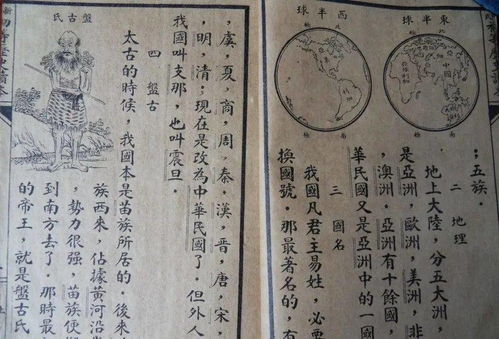 東半球
西半球
；五族．
二 地理
地上大陸，分五大洲，
是亞洲，歐洲，美洲，非
，澳洲．亞洲有十餘國，
華民國又是亞洲中的一國
三 國名
我國凡君主易姓，必要
換國號．那最著名的，有
，虞，夏，商，周，秦，漢，晉，唐，宋，
，明，清；現在是改為中華民國了．但外人
我國叫支那，也叫震旦．
四 盤古
太古的時候，我國本是苗族所居的．後來
盤古氏
族西來，佔據黃河沿
，勢力很强．苗族便
到南方去了．那時最
的帝王，就是盤古氏